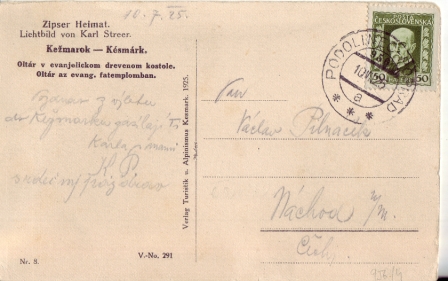 10.7.25.
Zipser Heimat.
Lichtbild von Karl Streer.
Kežmarok — Késmárk.
Oltár v evanjelickom drevenom kostole.
Oltár az evang. fatemplomban.
z výletu
do Kežmarku
Karla
K. P.
srdečný pozdrav
Nr. 8.
V.-No. 291
Verlag Turistik u. Alpinismus Kesmark. 1925.
POŠTA
ČESKOSLOVENSKÁ
50 50
PODOLÍN
10.VII.25
a
Pan
Václav Pilnáček
Náchod
Čechy